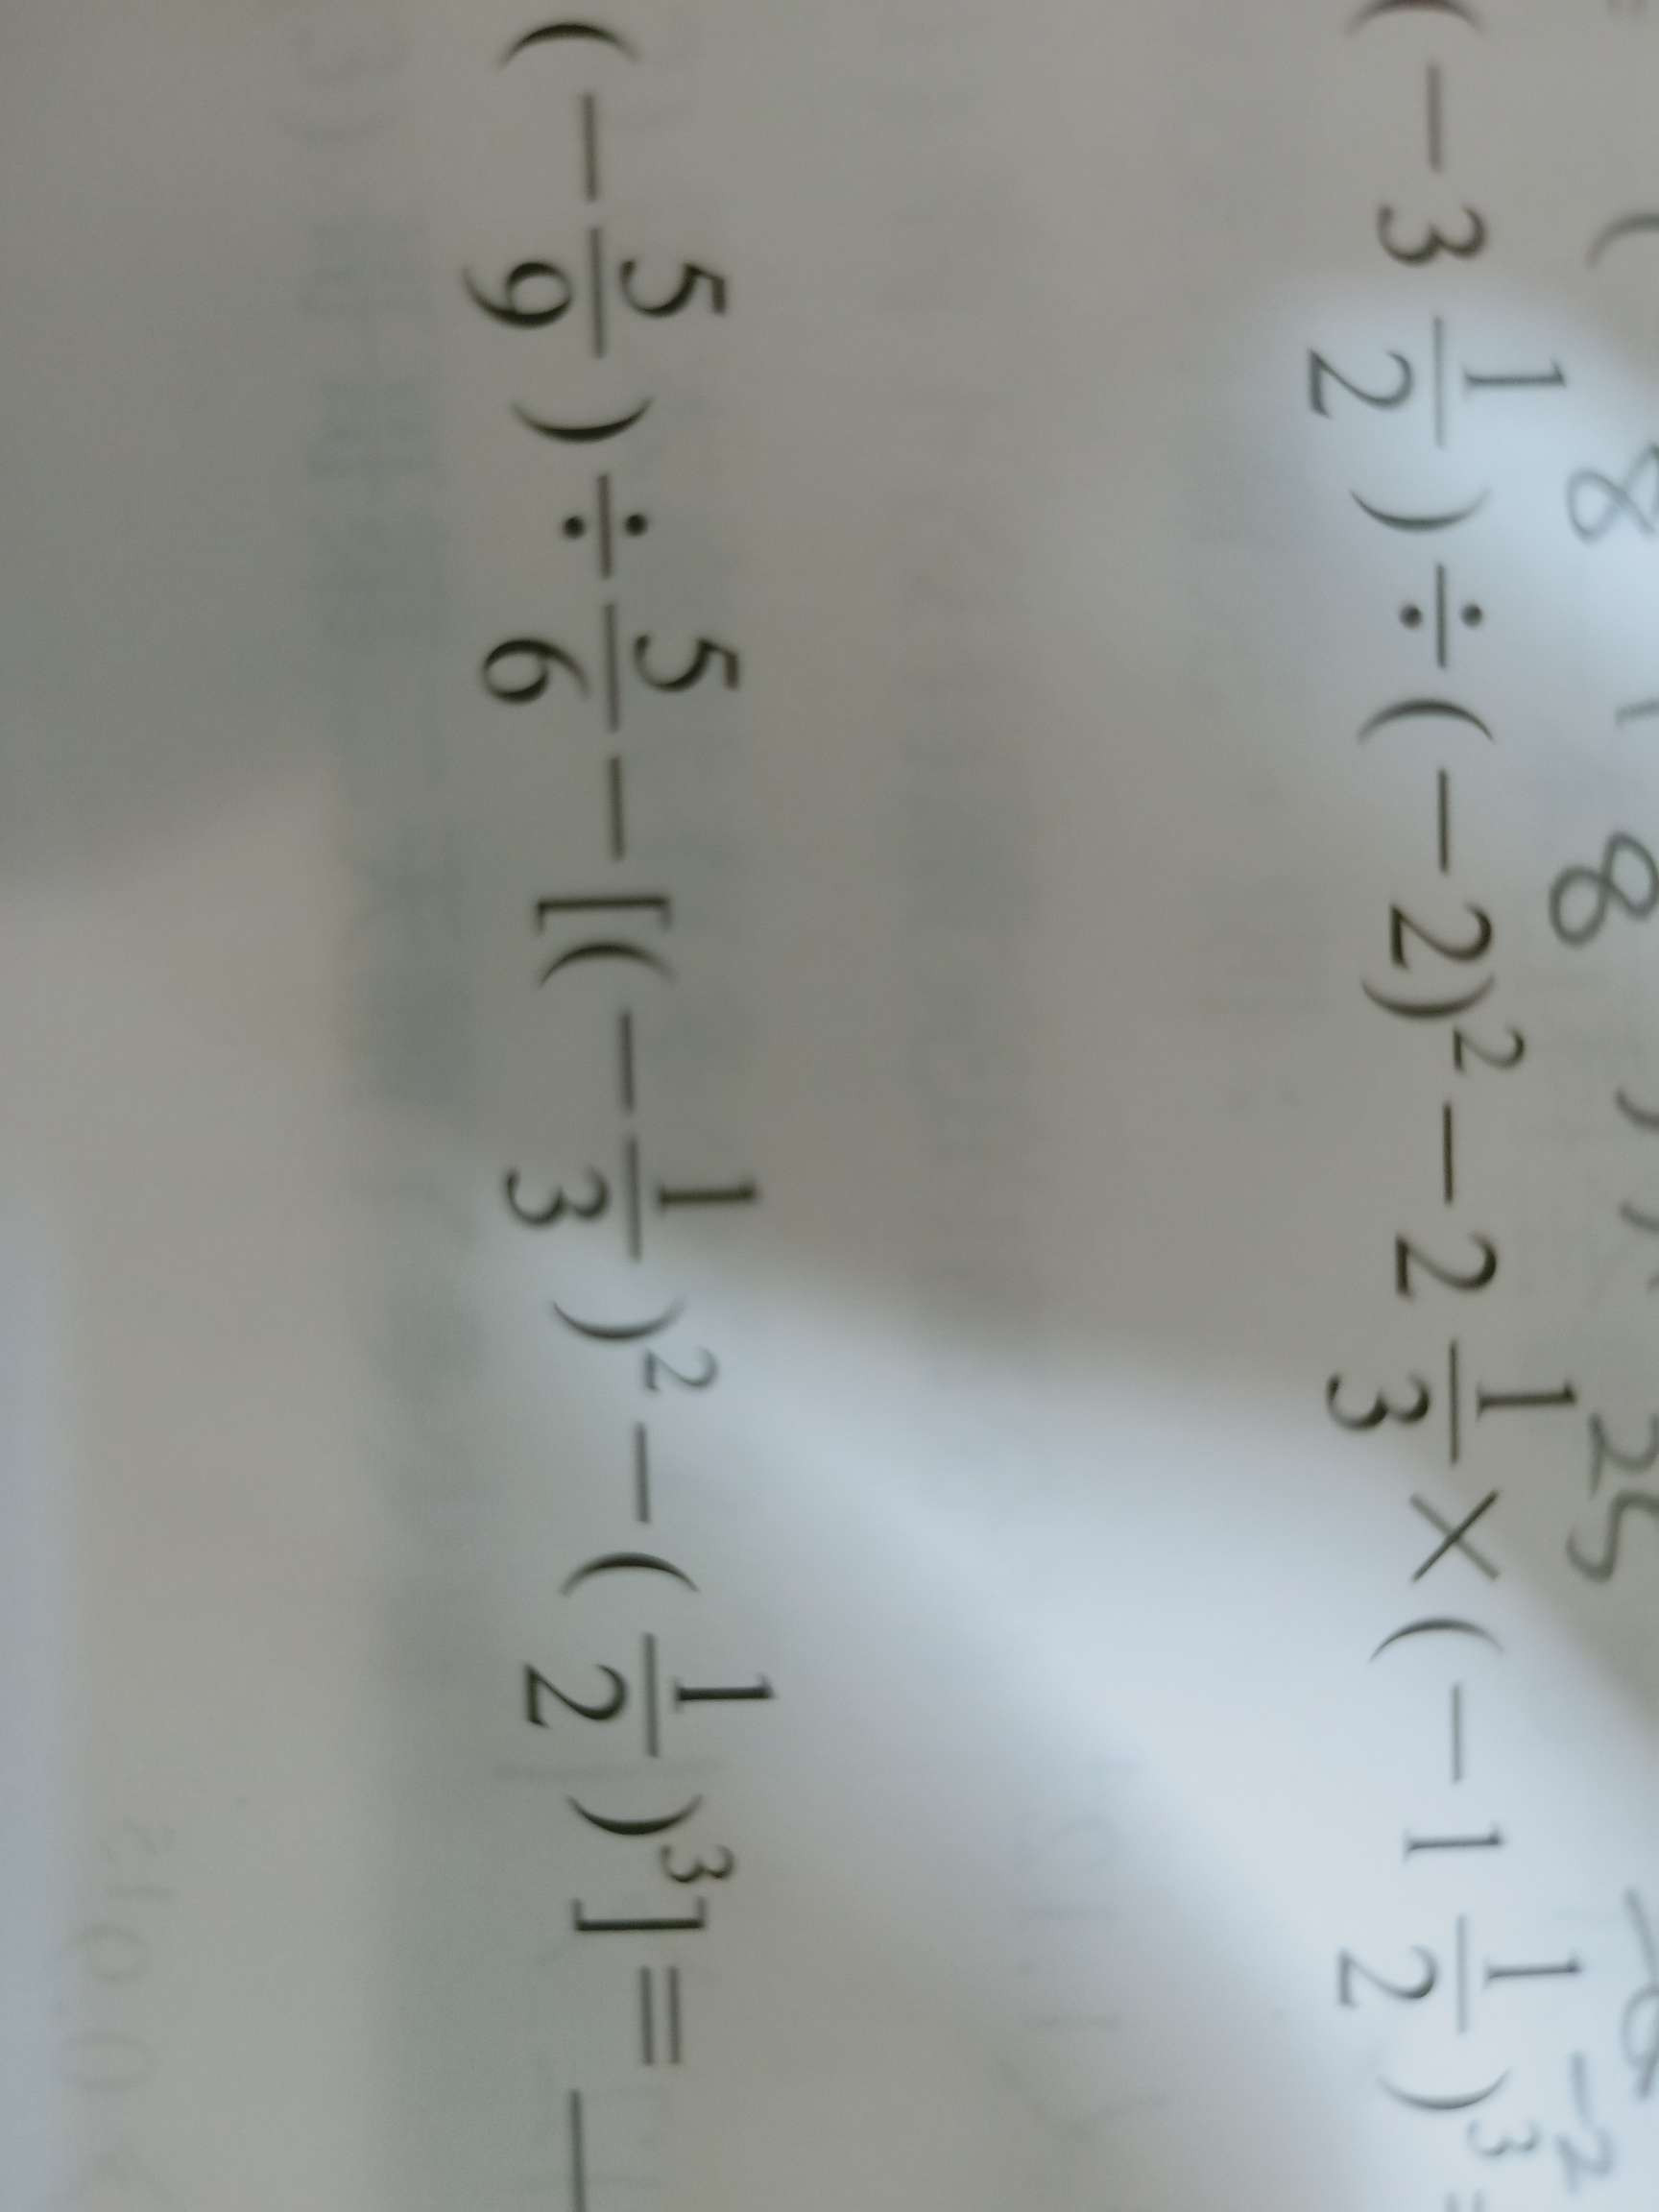 (-3 1/2)÷(-2)²-2 1/3×(-1 1/2)³=
(-5/9)÷5/6-[(-1/3)²-(1/2)³]=